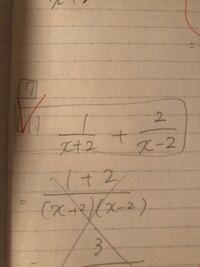 7
(1) 1/(x+2) + 2/(x-2)
= (1+2)/((x+2)(x-2))
3